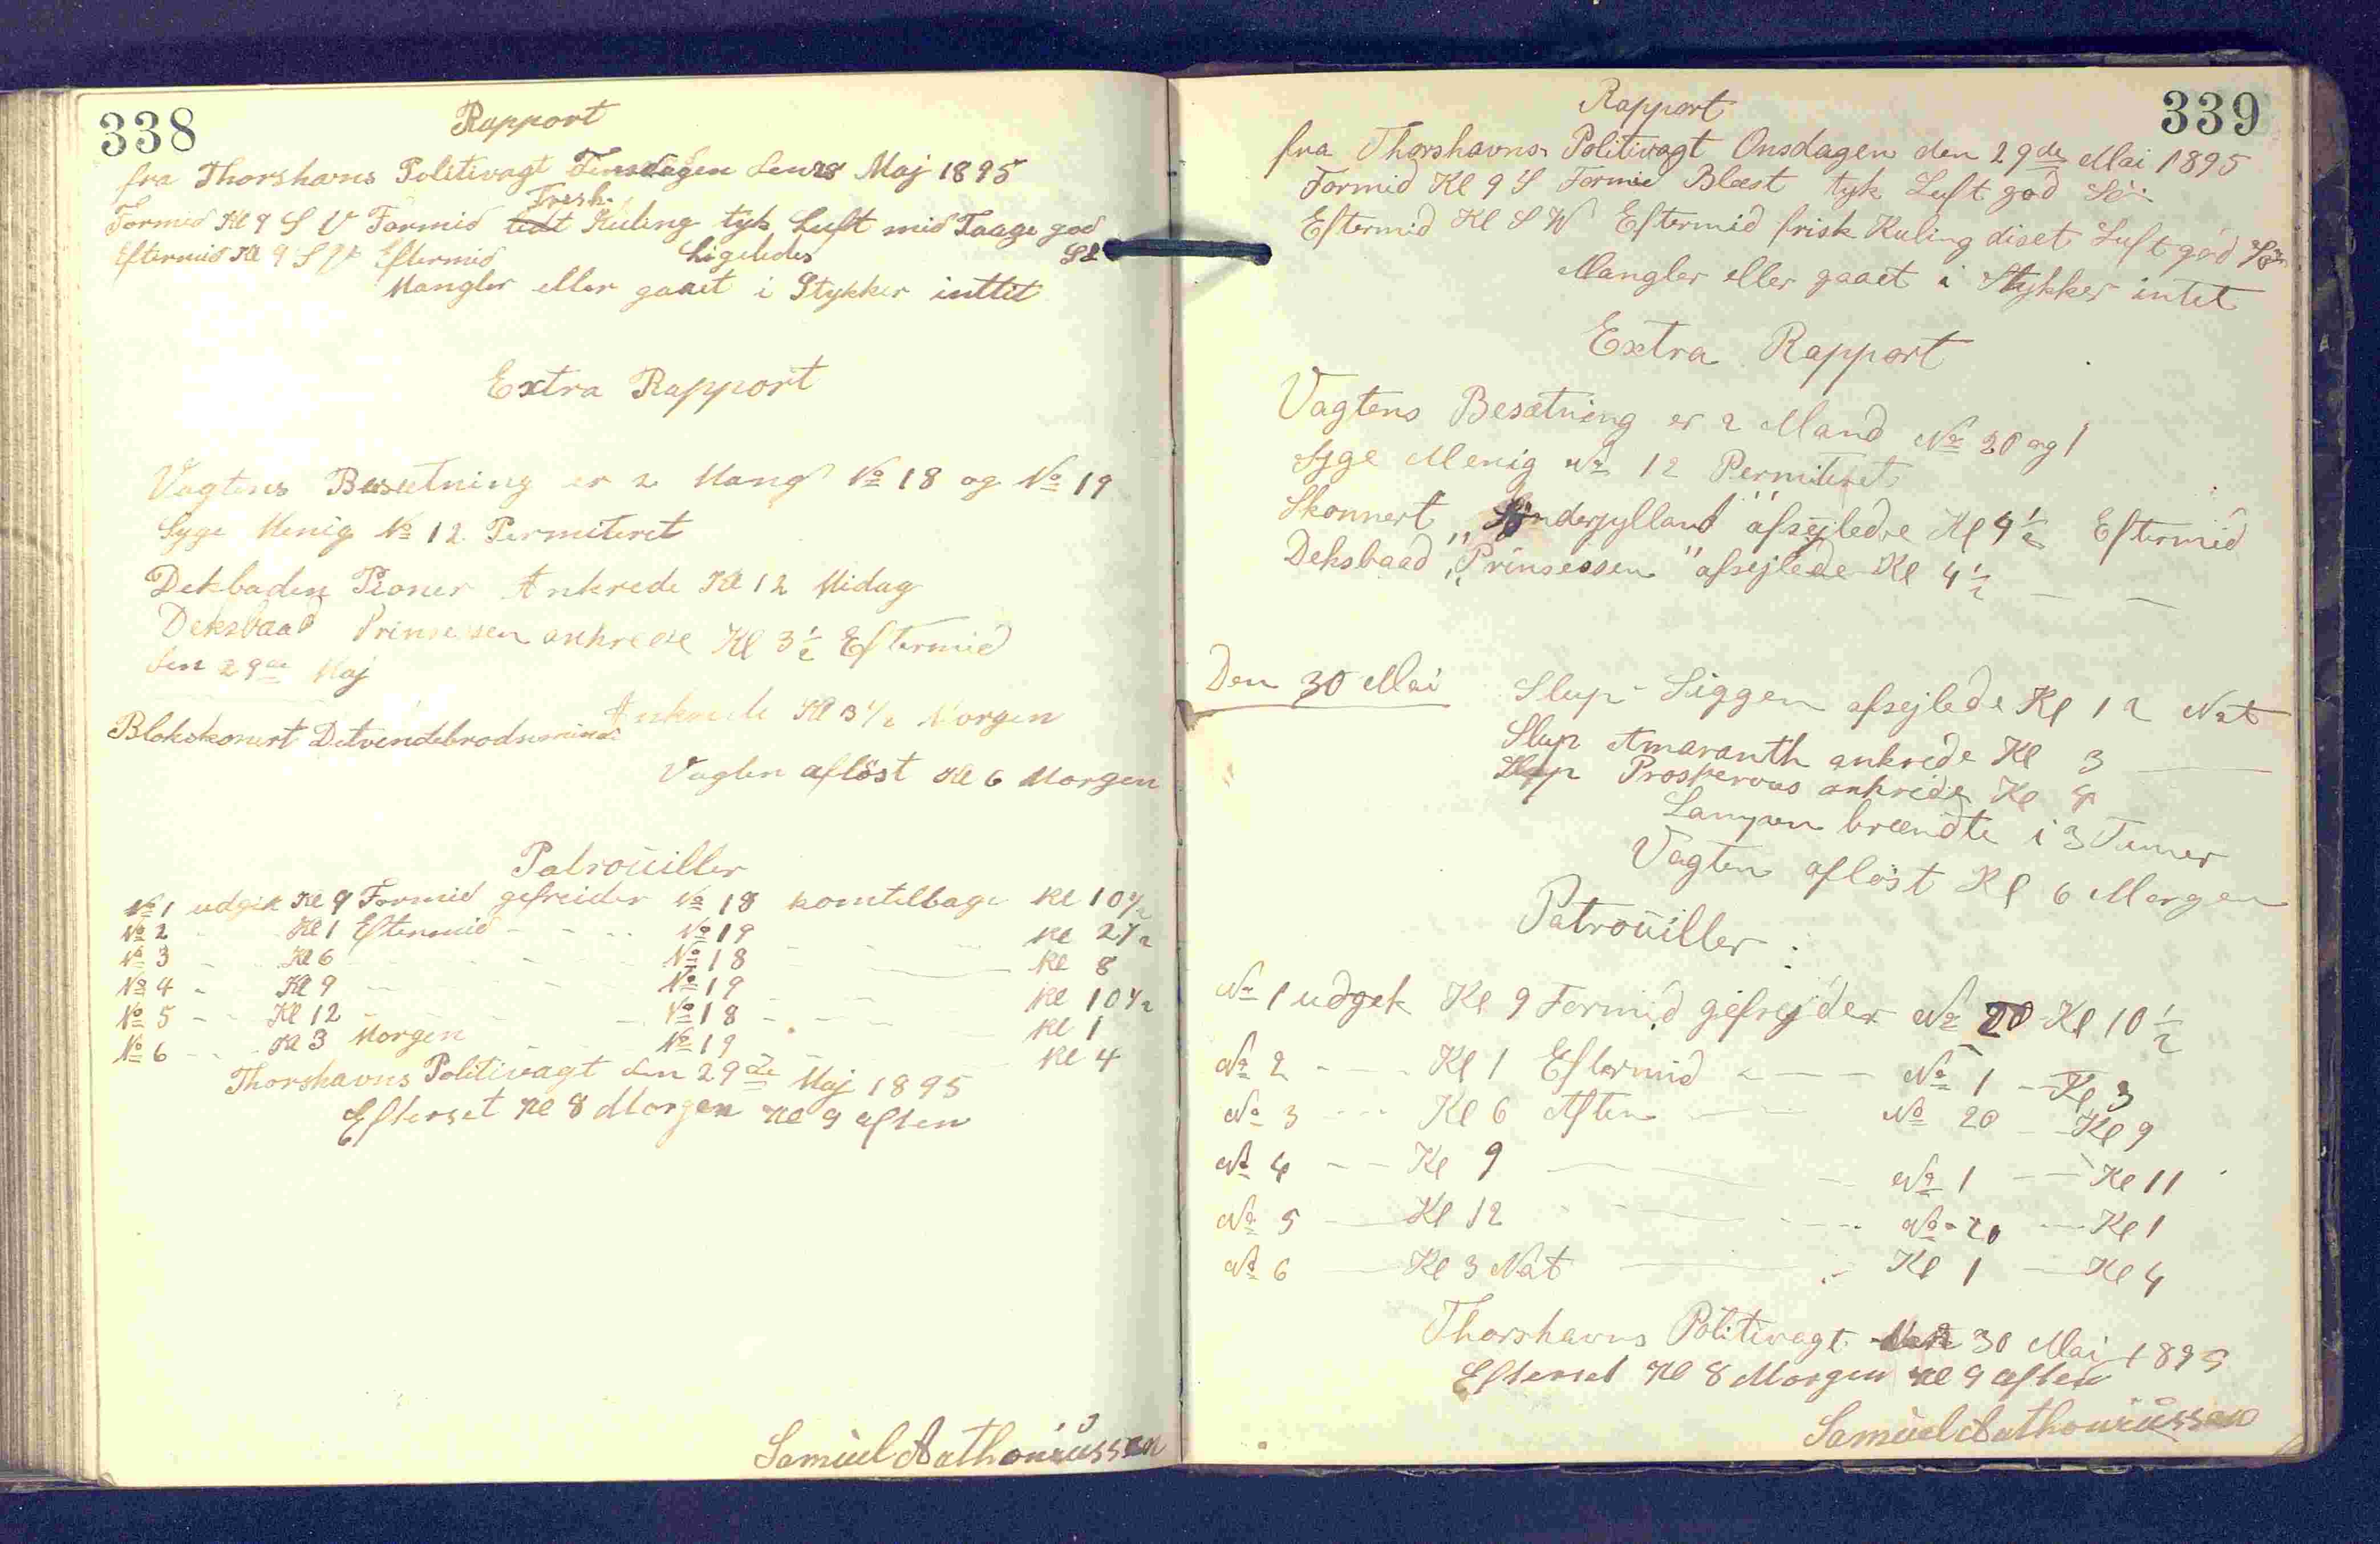 338
Rapport
fra Thorshavns Politivagt Tinsdagen den 28 Maj 1895
Fresh
Formid Kl 9 S V Formid tett Kuling tyk Luft mid Taage god
Eftermid Kl 9 S V Eftermid Ligeledes Sö
Mangler eller gaaet i Stykker inttit
Extra Rapport
Vagtens Besetning er 2 Mang No 18 og No 19
Syge Menig No 12 Permiteret
Dekbaden Pioner Ankrede Kl 12 Midag
Deksbaad Prinsessen ankrede Kl 3 1/2 Eftermid
den 29de Maj
Blokskonert Ankrede Kl 3 1/2 Morgen
Vagten aflöst Kl 6 Morgen
Patrouiller
No 1 udgik Kl 9 Formid gefreider No 18 komtilbage Kl 10 1/2
No 2 - Kl 1 Eftermid - - - No 19 Kl 2 1/2
No 3 - Kl 6 - - - No 18 - - Kl 8
No 4 - Kl 9 - - - No 19 Kl 10 1/2
No 5 - - Kl 12 - - - No 18 - - - Kl 1
No 6 - - Kl 3 Morgen - - No 19 - - Kl 4
Thorshavns Politivagt den 29de Maj 1895
Efterset Kl 8 Morgen Kl 9 aften
Samuel Anthoniussen
339
Rapport
fra Thorshavns Politivagt Onsdagen den 29de Mai 1895
Formid Kl 9 S Formid Blæst tyk Luft god Sö
Eftermid Kl S W Eftermid frisk Kuling diset Luft god Sö
Mangler eller gaaet i Stykker intet
Extra Rapport
Vagtens Besætning er 2 Mand No 20 og 1
Syge Menig No 12 Permiteret
Skonnert "Sönderjylland" afsejledre Kl 4 1/2 Eftermid
Deksbaad "Prinsessen" afsejlede Kl 4 1/2 — —
Den 30 Mai Slup Siggen afsejlede Kl 12 Nat
Slup Amaranth ankrede Kl 3 —
Slup Prosperous ankrede Kl 4
Lampen brændte i 3 Timer
Vagten aflöst Kl 6 Morgen
Patrouiller :
No 1 udgek Kl 9 Formid gefrejder No 20 Kl 10 1/2
No 2 - - - Kl 1 Eftermid - — — No 1 - Kl 3
No 3 - - - Kl 6 Aften — — No 20 - Kl 9
No 4 - - Kl 9 — - No 1 - — Kl 11
No 5 — Kl 12 - - - - - No 20 — Kl 1
No 6 — Kl 3 Nat — - Kl 1 — Kl 4
Thorshavns Politivagt 30 Mai 1895
Efterset Kl 8 Morgen Kl 9 aften
Samuel Anthoniussen